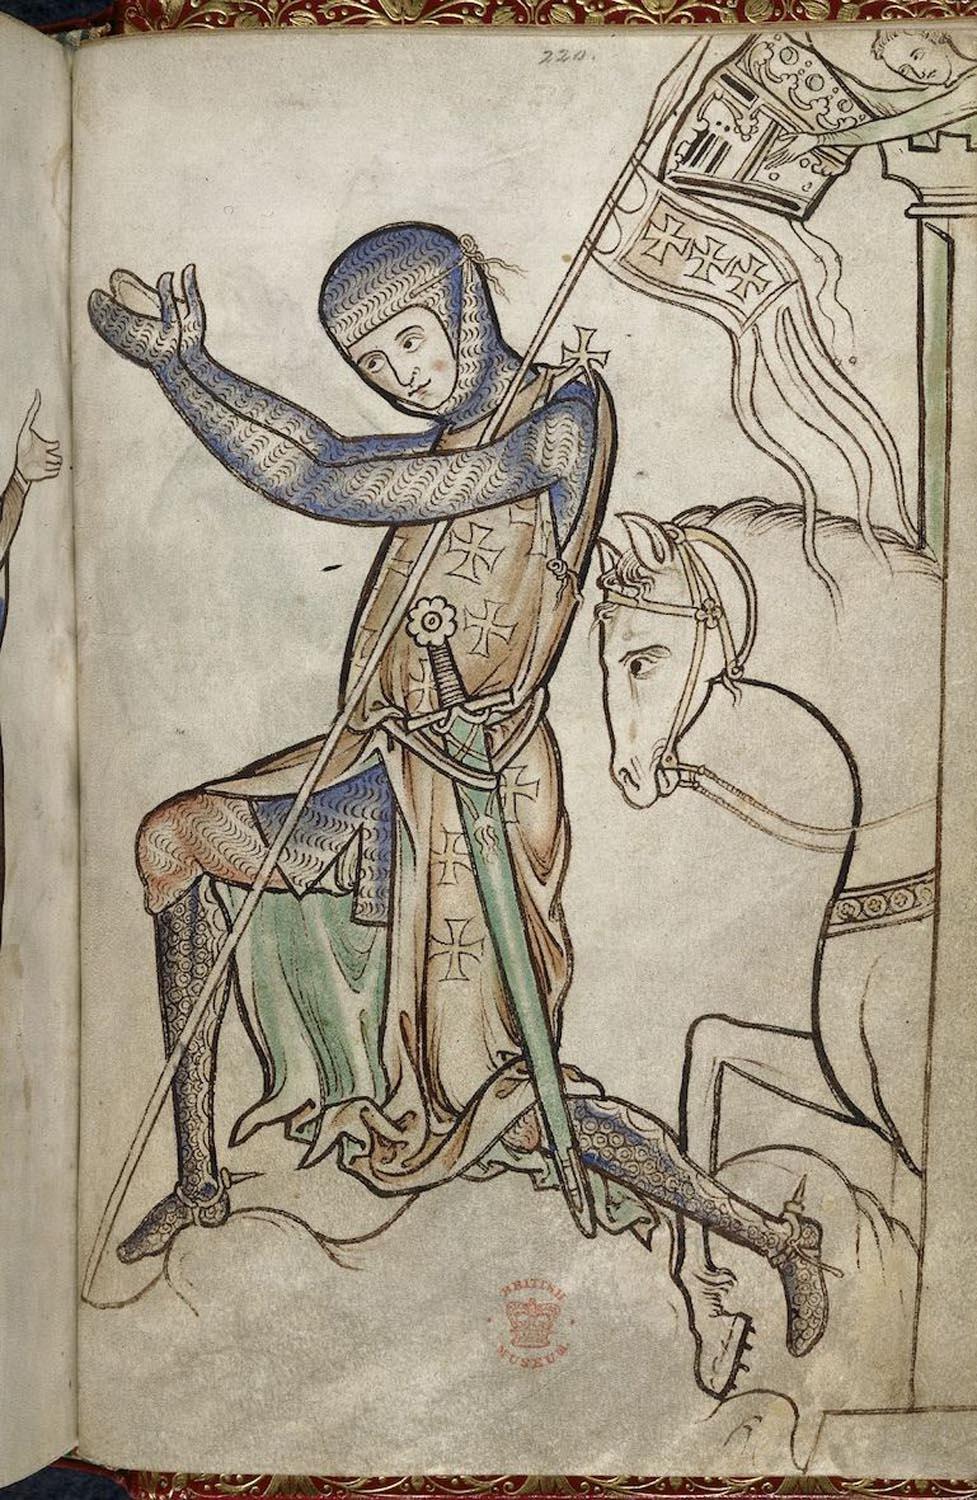 220.
BRITISH
MUSEUM